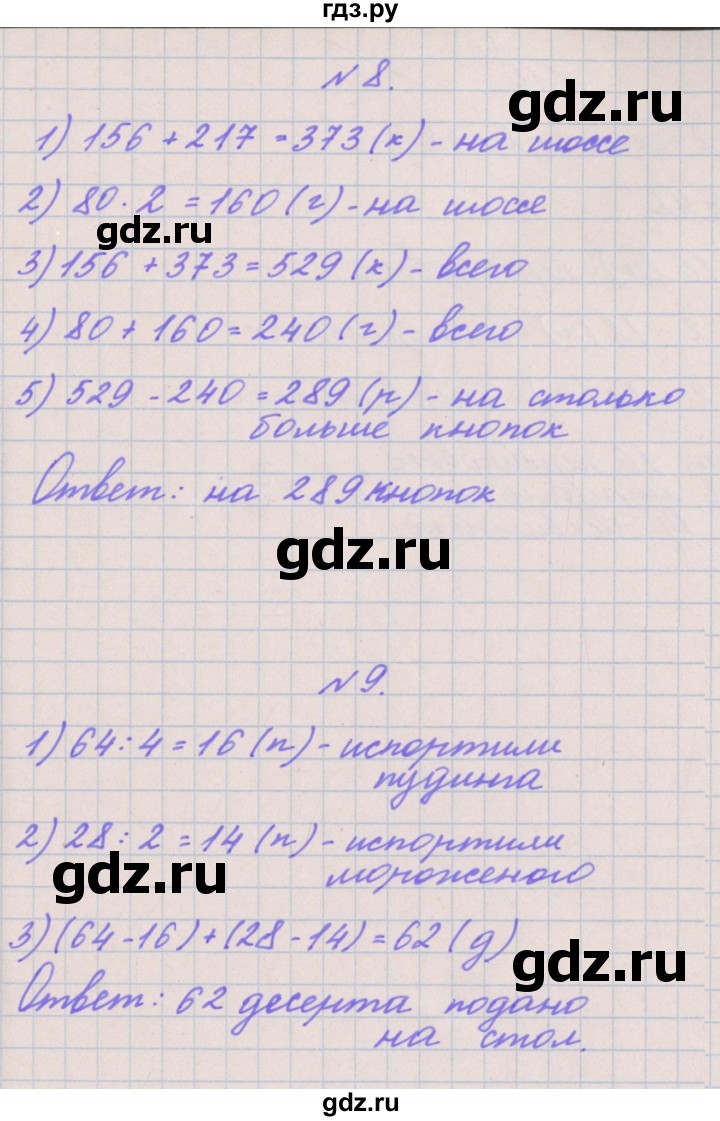 гдз.ру
№8.
gdz.ru
1) 156 + 217 = 373 (к) - на шоссе
2) 80 · 2 = 160 (г) - на шоссе
gdz.ru
3) 156 + 373 = 529 (к) - всего
4) 80 + 160 = 240 (г) - всего
5) 529 - 240 = 289 (р) - на столько
больше кнопок
Ответ: на 289 кнопок
gdz.ru
№9.
1) 64 : 4 = 16 (п) - испортили
пудинга
2) 28 : 2 = 14 (п) - испортили
gdz.ru
мороженого
3) (64 - 16) + (28 - 14) = 62 (д)
gdz.ru
Ответ: 62 десерта подано
на стол.
gdz.ru